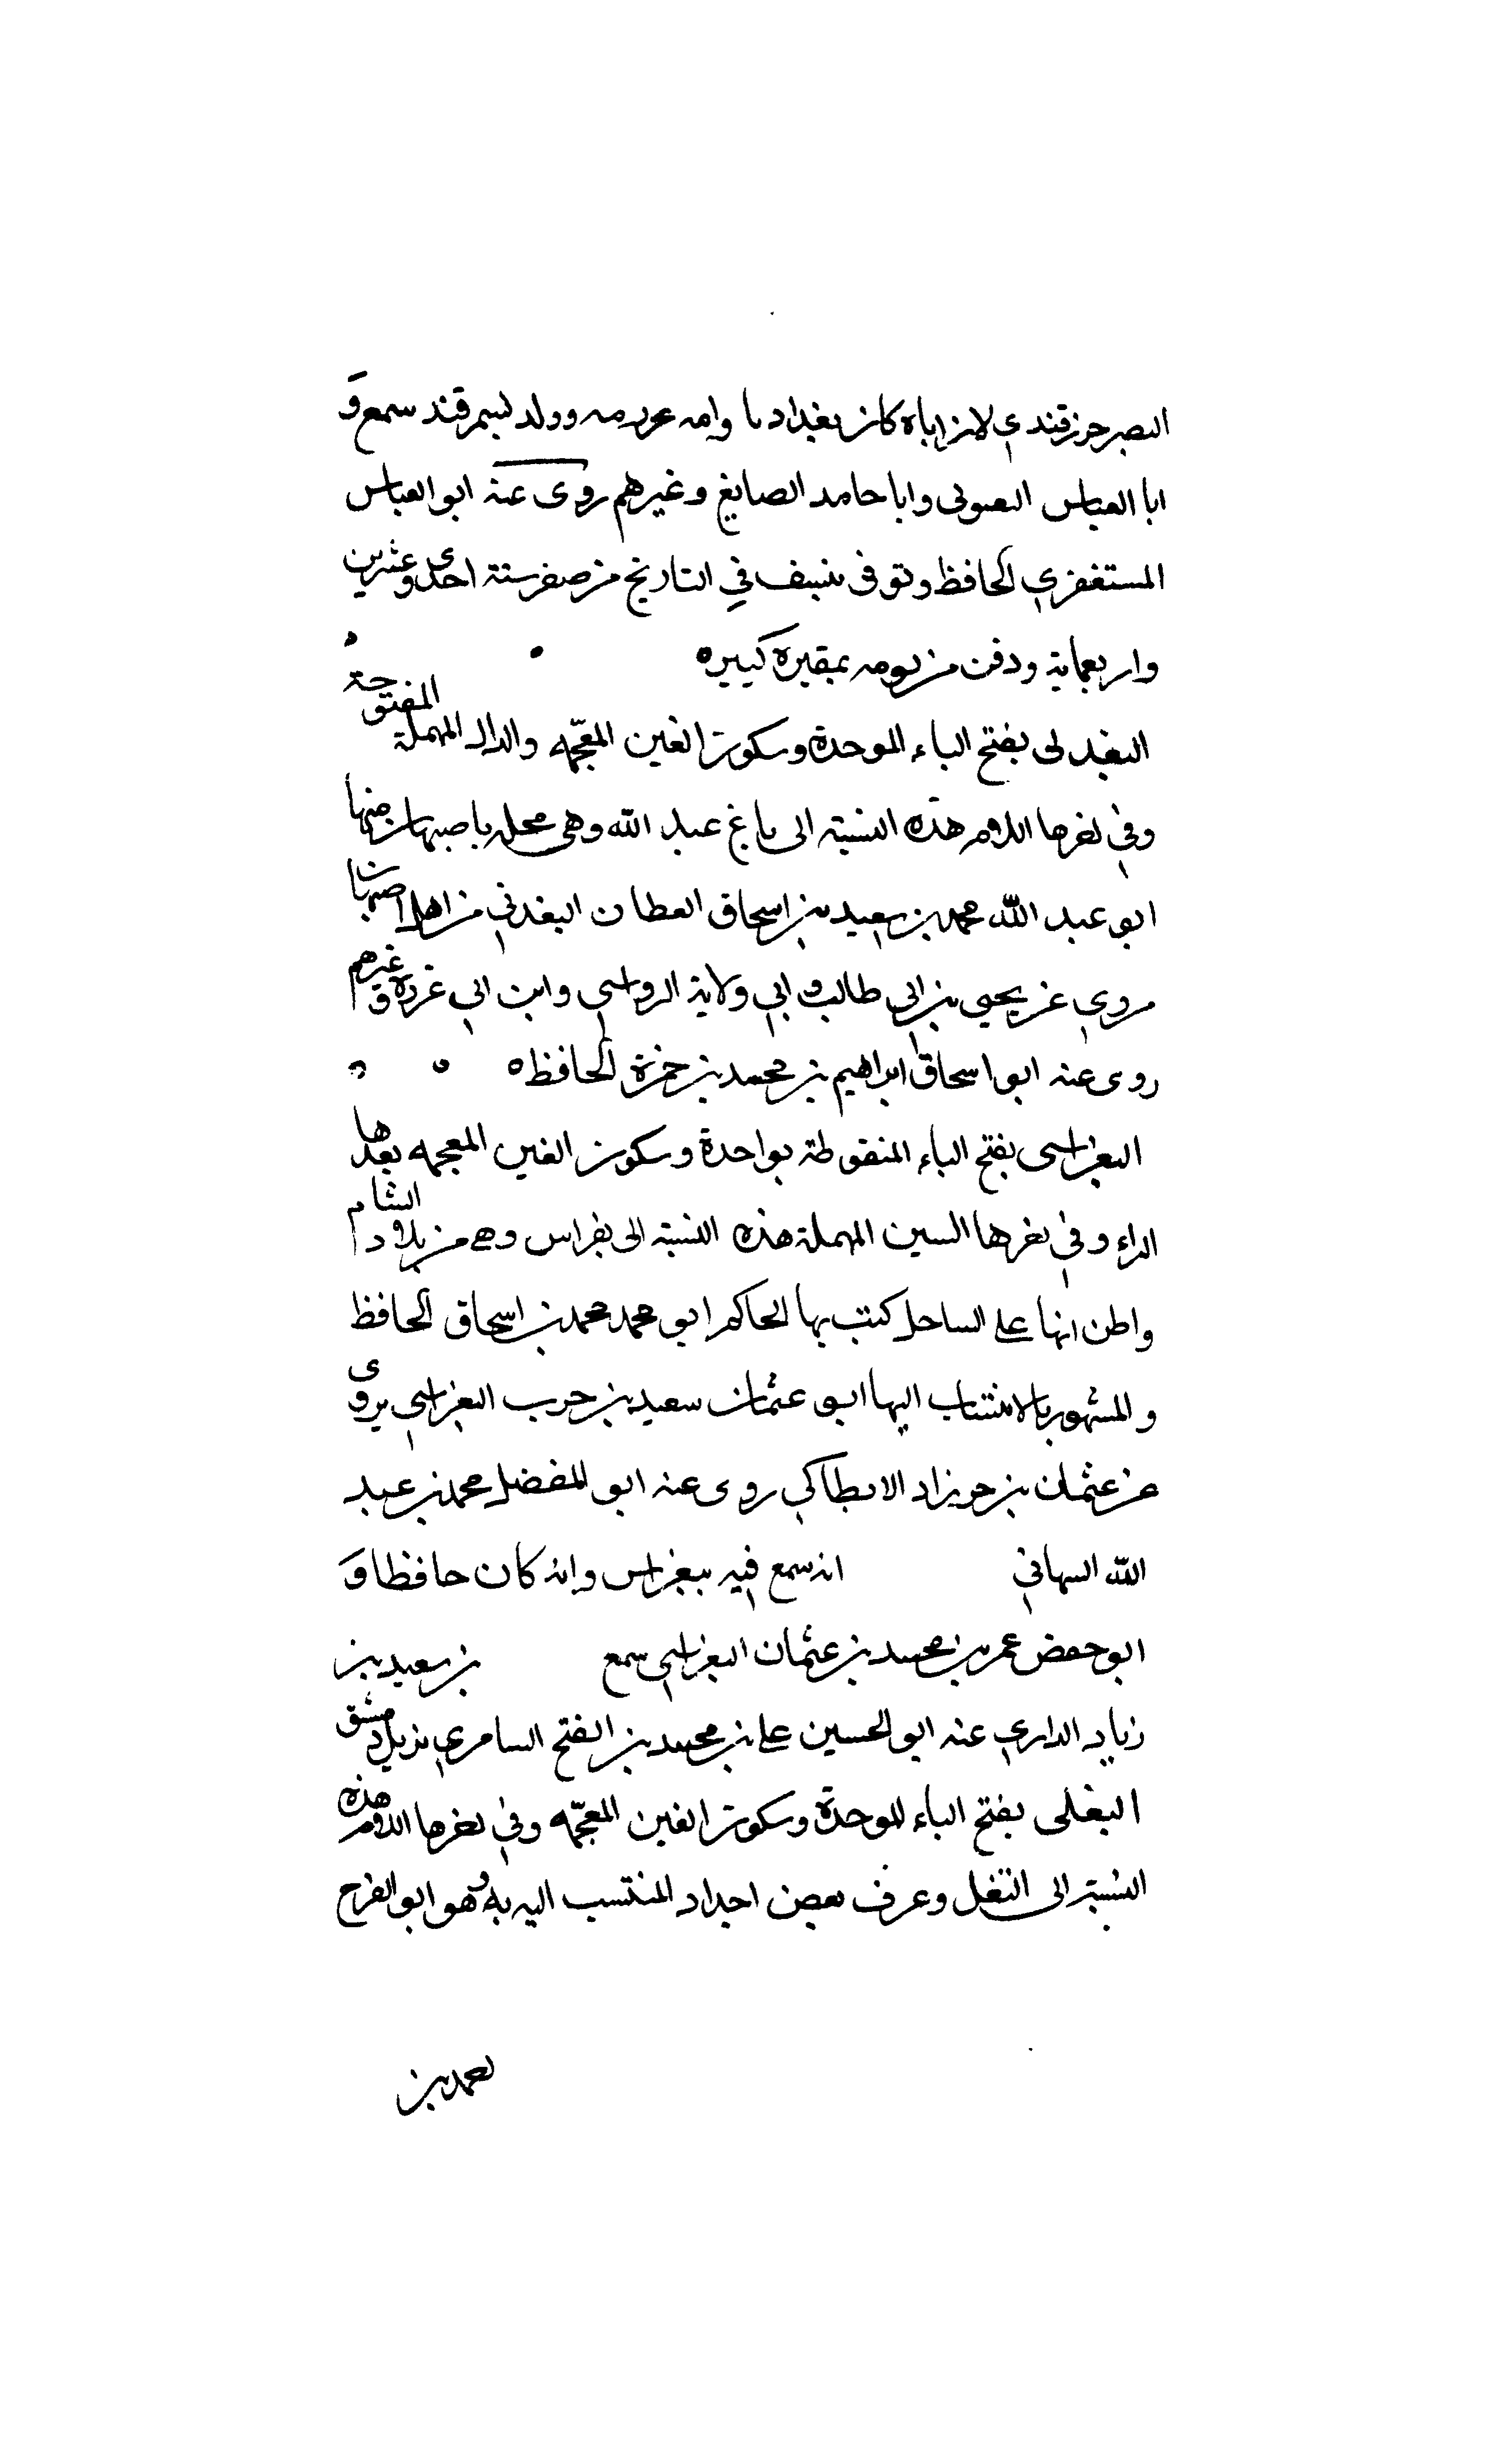 البصرحرقندي لان اباه كان بغداديا وامه عربيه وولد بسمرقند سمع و
ابا العباس الصولى وابا حامد الصايغ وغيرهم روى عنه ابو العباس
المستغفري الحافظ وتوفى بنسف في التاريخ من صفر سنة احدى وعشرين
واربعماية ودفن من يومه بمقبرة كبيره
البغدلى بفتح الباء الموحدة وسكون الغين المعجمه والدال المهملة المفتوحة
وفي اخرها اللام هذه النسبة الى باغ عبد الله وهي محله باصبهان منها
ابو عبد الله محمد بن سعيد بن اسحاق القطان البغدلي من اهل اصبهان
يروي عن يحيى بن ابي طالب و ابي ولاية الرواسي وابن ابي غرزة وغيرهم
روى عنه ابو اسحاق ابراهيم بن محمد بن حمزة الحافظ ه
البغراسى بفتح الباء المنقوطة بواحدة وسكون الغين المعجمه بعدها
الراء وفي اخرها السين المهملة هذه النسبة الى بغراس وهي من بلاد الشام
واظن انها على الساحل كتب بها الحاكم ابو محمد محمد بن اسحاق الحافظ
والمشهور بالانتساب اليها ابو عثمان سعيد بن حرب البغراسي يروى
عن عثمان بن خرزاد الانطاكي روى عنه ابو المفضل محمد بن عبد
الله السهاني انه سمع فيه ببغراس وانه كان حافظا و
ابو حفص عمر بن محمد بن عثمان البغراسي سمع بن سعيد بن
زياد الداري عنه ابو الحسين على بن محمد بن الفتح السامري نزيل دمشق
البغلى بفتح الباء الموحدة وسكون الغين المعجمه وفي اخرها اللام هذه
النسبة الى البغل وعرف بعض اجداد المنتسب اليه به وهو ابو الفرج
محمد بن